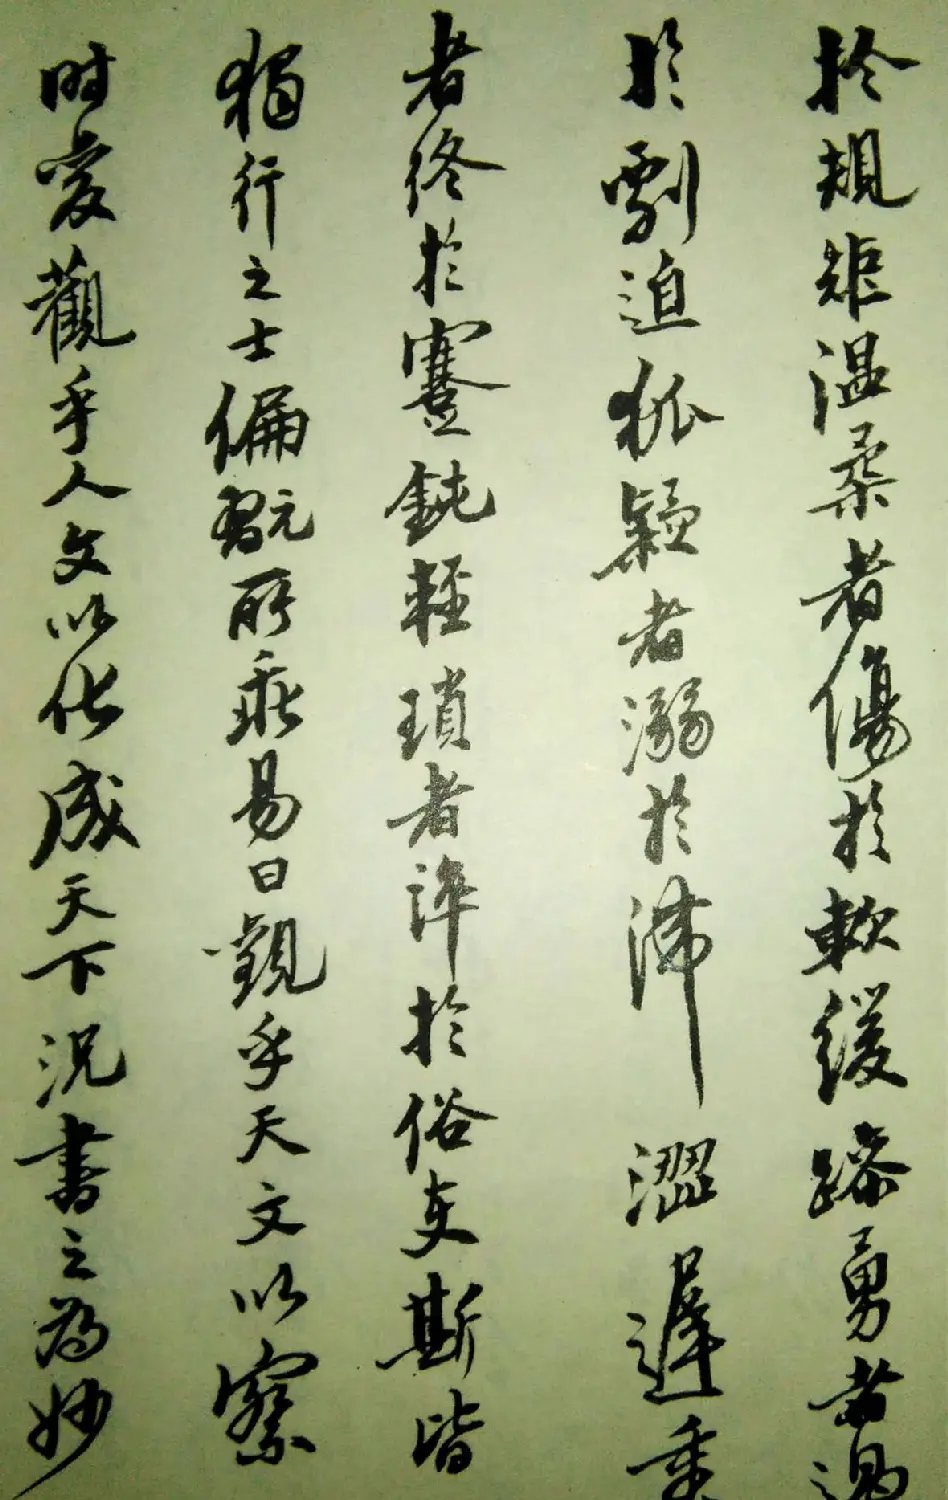 於規矩温柔者傷於軟緩躁勇者過
於剽迫狐疑者溺於滯澀遲重
者終於蹇鈍輕瑣者淬於俗吏斯皆
獨行之士偏翫所乖易曰觀乎天文以察
時變觀乎人文以化成天下況書之為妙